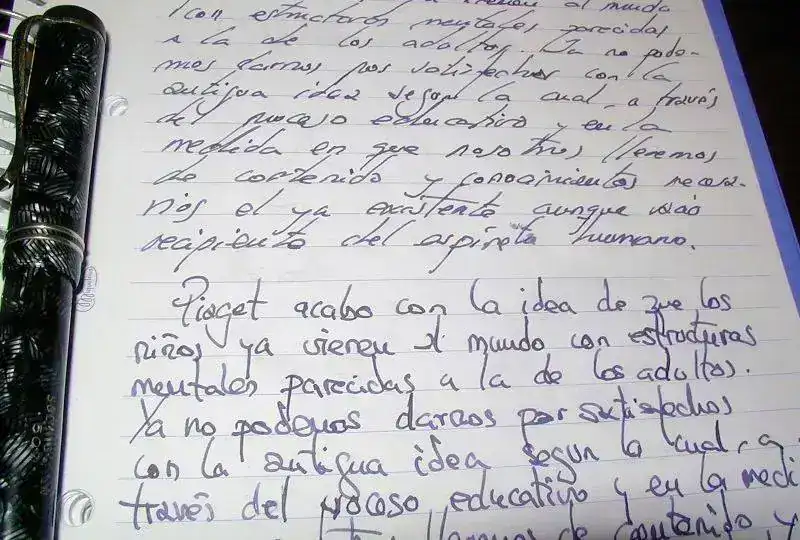 al mundo
con estructuras mentales parecidas
a la de los adultos. Ya no pode-
mos darnos por satisfechos con la
antigua idea segun la cual, a través
del proceso educativo y en la
medida en que nosotros llenemos
de contenido y conocimientos necesa-
rios el ya existente aunque vacio
recipiente del espiritu humano.
Piaget acabo con la idea de que los
niños ya vienen al mundo con estructuras
mentales parecidas a la de los adultos.
Ya no podemos darnos por satisfechos
con la antigua idea segun la cual, a
través del proceso educativo y en la medi
de contenido y